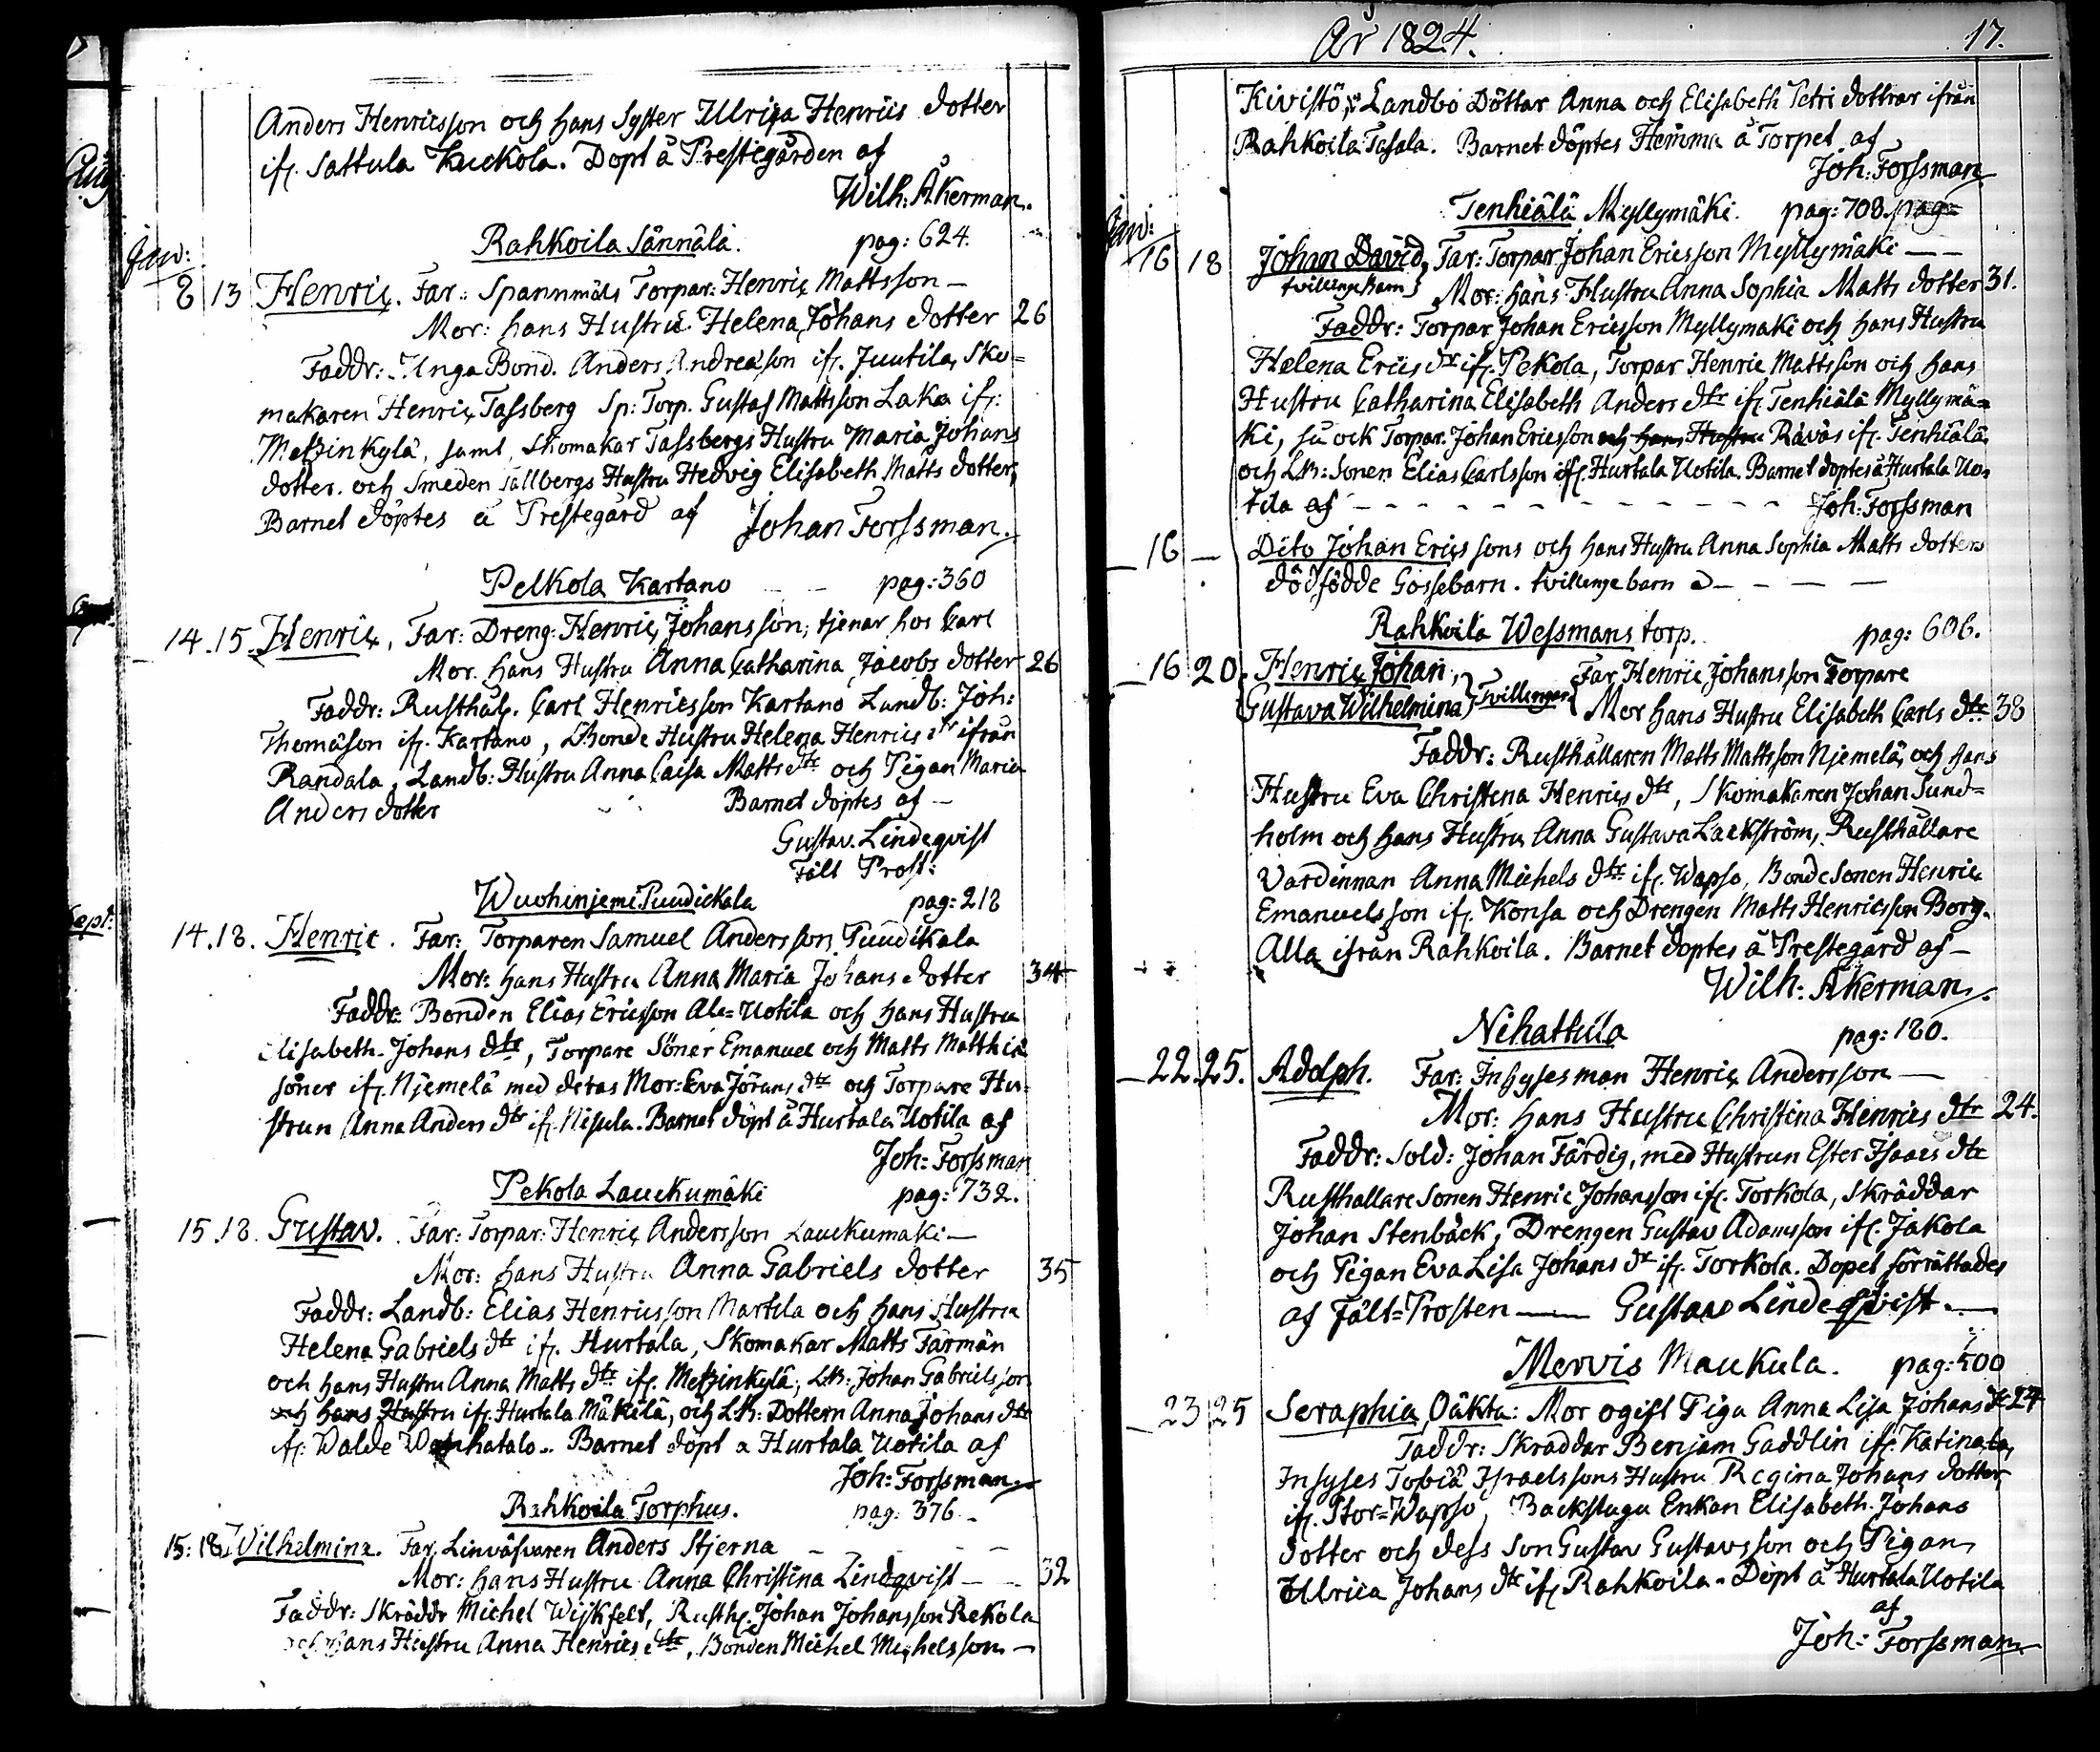 Anders Henricsson och hans Syster Ullrica Henrics dotter
ifr. Sattula Kuckola. Döpt å Prestegården af
Wilh: Åkerman.
Rahkoila Sännälä. pag: 624.
Jan:
8 13 Henric. Far: Spannmåls Torpar: Henric Mattsson —
Mor: hans Hustru Helena Johans dotter 26
Faddr: Unga Bond. Anders Andreason ifr. Juutila, Sko=
makaren Henric Tassberg Sp: Torp. Gustaf Mattsson Laka ifr:
Metzinkylä, samt, Skomakar Tassbergs Hustru Maria Johans
dotter. och Smeden Tallbergs Hustru Hedvig Elisabeth Matts dotter,
Barnet döptes å Prestegård af Johan Forssman.
Pelkola Kartano pag: 360
14. 15. Henric, Far: Dreng: Henric Johansson, tjenar hos Carl
Mor. hans Hustru Anna Catharina Jacobs dotter 26
Faddr: Rusthål. Carl Henricsson Kartano Landb: Joh:
Thomäson ifr. Kartano, Bonde Hustru Helena Henrics dr ifrån
Randala, Landb: Hustru Anna Caisa Matts dtr och Pigan Maria
Anders dotter Barnet döptes af —
Gustav. Lindeqvist
Fält Prost:
Wuohinjemi Puudickala pag: 218
14. 18. Henric. Far: Torparen Samuel Andersson Puudikala
Mor: hans Hustru Anna Maria Johans dotter 34
Faddr: Bonden Elias Ericsson Ala=Uotila och hans Hustru
Elisabeth Johans dtr, Torpare Söner Emanuel och Matts Matthiä
söner ifr. Njemelä med deras Mor: Eva Jörans dtr och Torpare Hu=
strun Anna Anders dtr ifr. Nisula. Barnet döpt å Hurtala Uotila af
Joh: Forssman
Pekola Lauckumäki pag: 732.
15. 18. Gustav. Far: Torpar: Henric Andersson Lauckumäki —
Mor: hans Hustru Anna Gabriels dotter 35
Faddr: Landb: Elias Henricsson Martila och hans Hustru
Helena Gabriels dtr ifr. Hurtala, Skomakar Matts Färmän
och hans Hustru Anna Matts dtr ifr. Metzinkylä, LB: Johan Gabrielsson
och hans Hustru ifr. Hurtala Mäkilä, och LB: Dottern Anna Johans dtr
ifr. Walde Wanhatalo. Barnet döpt å Hurtala Uotila af
Joh: Forssman.
Rahkoila Torphus. pag: 376.
15. 18. Wilhelmina. Far. Linväfvaren Anders Stjerna —
Mor: hans Hustru Anna Christina Lindqvist — 32
Faddr: Skräddr Michel Wijkfelt, Rusth. Johan Johansson Rekola
och hans Hustru Anna Henrics dtr, Bonden Michel Michelsson —
År 1824. 17.
Kivistö, Landbo Döttar Anna och Elisabeth Petri dottrar ifrån
Rahkoila Tasala. Barnet döptes Hemma å Torpet af
Joh: Forssman
Tenhiälä Myllymäki. pag: 708. pag=
Jan:
16 18 Johan David, Far: Torpar Johan Ericsson Myllymäki — —
tvillinge barn Mor: hans Hustru Anna Sophia Matts dotter 31.
Faddr: Torpar Johan Ericsson Myllymäki och hans Hustru
Helena Erics dr ifr. Pekola, Torpar Henric Mattsson och hans
Hustru Catharina Elisabeth Anders dtr ifr Tenhiälä Myllymä=
ki, så ock Torpar. Johan Ericsson och hans Hustru Rävås ifr. Tenhiälä
och LB: Sonen Elias Carlsson ifr. Hurtala Uotila. Barnet döptes å Hurtala Uo=
tila af — Joh: Forssman
16 — Dito Johan Erics sons och hans Hustru Anna Sophia Matts dotters
dödfödde Gossebarn. tvillinge barn — — —
Rahkoila Wessmans torp. pag: 606.
16 20. Henric Johan, Far Henric Johansson Torpare
Gustava Wilhelmina Tvillingar Mor hans Hustru Elisabeth Carls dtr 38
Faddr: Rusthållaren Matts Mattsson Njemelä, och hans
Hustru Eva Christena Henrics dtr, Skomakaren Johan Sund=
holm och hans Hustru Anna Gustava Lackström, Rusthållare
Värdinnan Anna Michels dtr ifr. Wapso, Bonde Sonen Henric
Emanuelsson ifr. Konsa och Drengen Matts Henricsson Borg.
Alla ifrån Rahkoila. Barnet döptes å Prestegård af —
Wilh: Åkerman.
Nihattula pag: 180.
22. 25. Adolph. Far: Inhyses man Henric Andersson —
Mor: hans Hustru Christina Henrics dtr 24.
Faddr: Sold: Johan Färdig, med Hustrun Ester Isaacs dtr
Rusthållare Sonen Henric Johansson ifr. Torkola, Skräddar
Johan Stenbäck, Drengen Gustav Adamsson ifr. Jakola
och Pigan Eva Lisa Johans dr ifr. Torkola. Dopet förrättades
af Fält=Prosten — Gustav Lindeqvist. —
Mervis Maukula. pag: 500
23 25 Seraphia Oäkta: Mor ogift Piga Anna Lisa Johans dr 24
Faddr: Skräddar Benjam Gaddlin ifr. Katinala,
Inhyses Tobiä Israelssons Hustru Regina Johans dotter,
ifr. Stor=Wapso, Backstugu Enkan Elisabeth Johans
dotter och dess Son Gustav Gustavsson och Pigan
Ullrica Johans dtr ifr Rahkoila. Döpt å Hurtala Uotila
af
Joh: Forssman